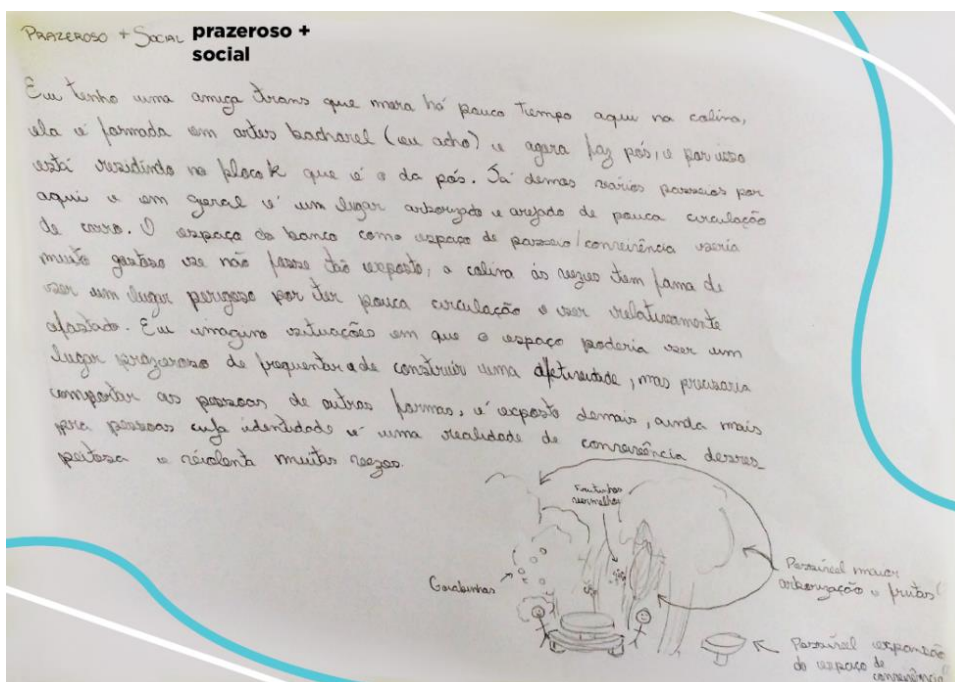 PRAZEROSO + SOCIAL
prazeroso +
social
Eu tenho uma amiga trans que mora há pouco tempo aqui na colina,
ela é formada em artes bacharel (eu acho) e agora faz pós, e por isso
está residindo no bloco K que é o da pós. Já demos vários passeios por
aqui e em geral é um lugar arborizado e arejado de pouca circulação
de carro. O espaço do banco como espaço de passeio/convivência seria
muito gostoso se não fosse tão exposto, a colina às vezes tem fama de
ser um lugar perigoso por ter pouca circulação e ser relativamente
afastado. Eu imagino situações em que o espaço poderia ser um
lugar prazeroso de frequentar e de construir uma afetividade, mas precisaria
comportar as pessoas de outras formas, é exposto demais, ainda mais
pra pessoas cuja identidade é uma realidade de convivência desres-
peitosa e violenta muitas vezes.
Frutinhas
vermelhas
Goiabinhas
Possível maior
arborização e frutas
Possível expansão
do espaço de
convivência